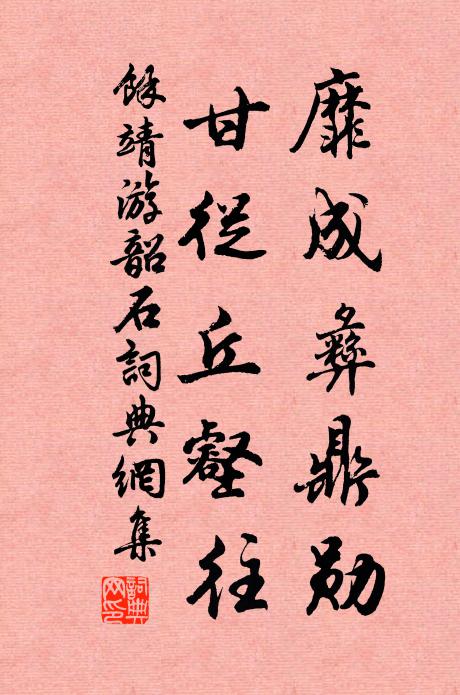 靡成彝鼎勛
甘從丘壑往
餘靖游韶石詞典網集
詞典網印